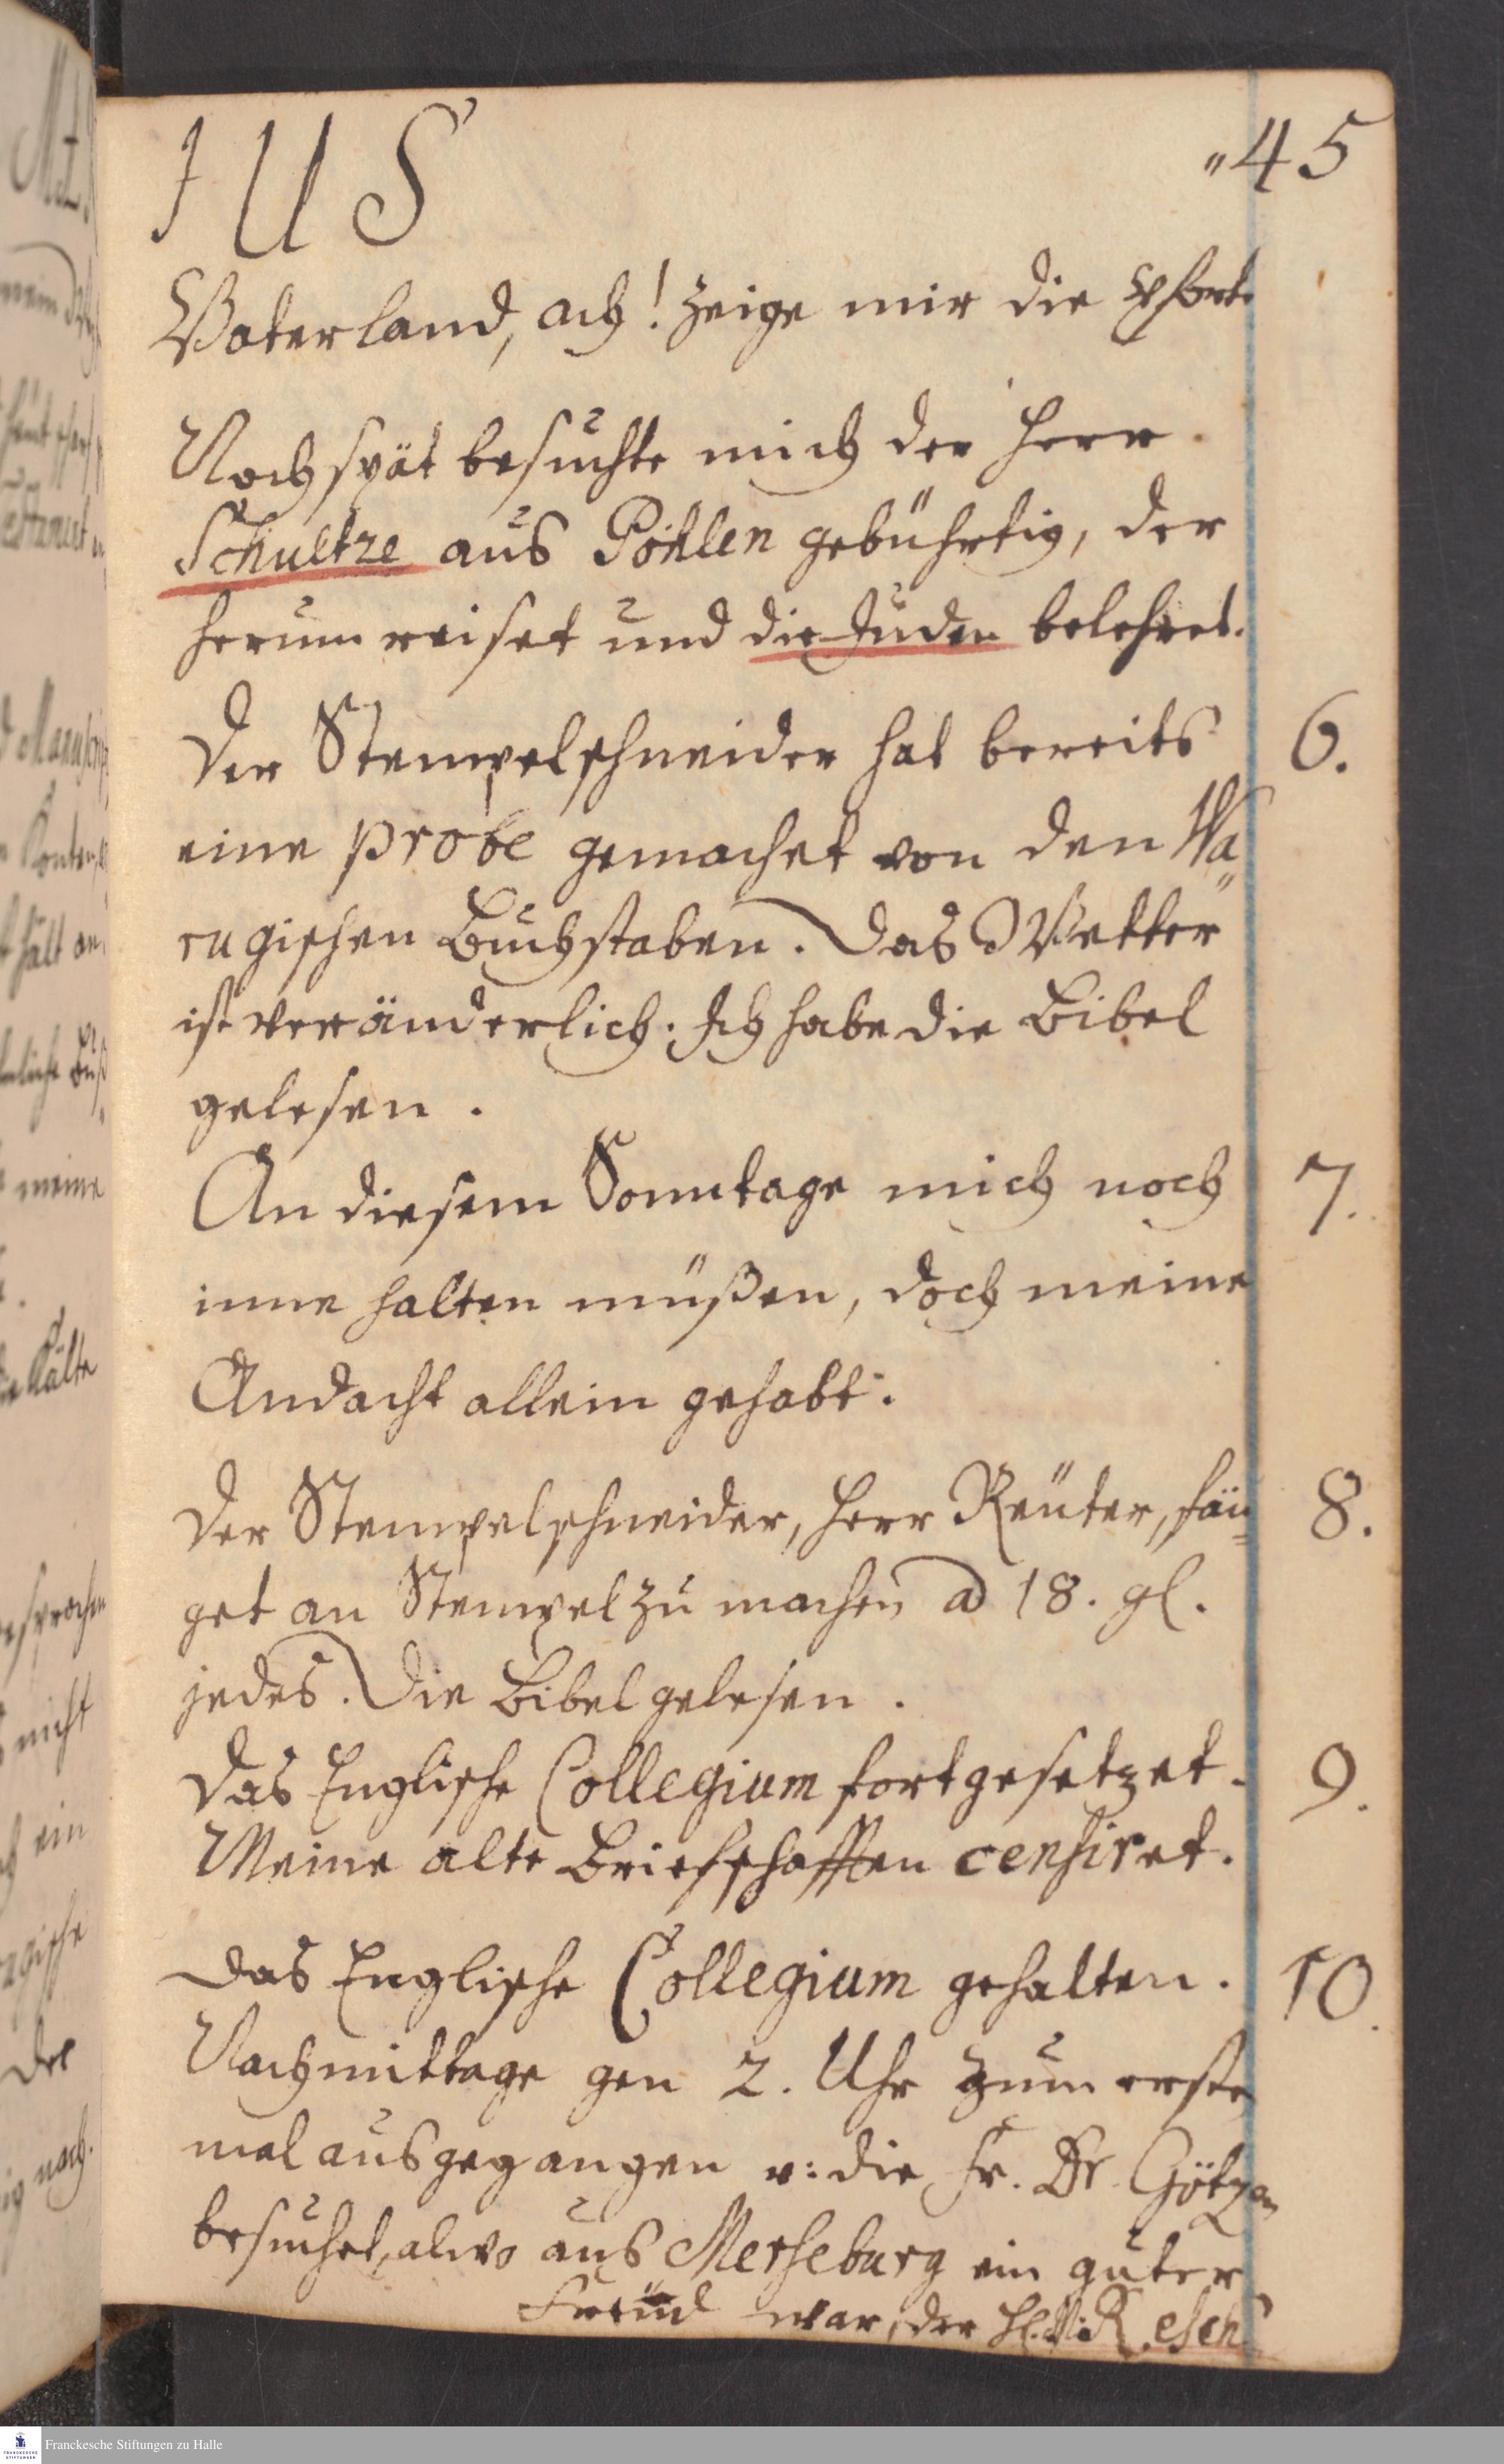 IUS
"45
Vaterland, ach! zeige mir die Pforte
Noch spät besuchte mich der Herr
Schultze aus Pohlen gebührtig, der
herum reiset und die Juden belehret.
Der Stempelschneider hat bereits 6.
eine probe gemachet von den Wa
rugischen Buchstaben. Das Wetter
ist veränderlich. Ich habe die Bibel
gelesen.
An diesem Sonntage mich noch 7.
inne halten müßen, doch meine
Andacht allein gehabt.
Der Stempelschneider, Herr Reüter, fän= 8.
get an Stempel zu machen a 18. gl.
jedes. Die Bibel gelesen.
Das Englische Collegium fortgesetzet. 9.
Meine alte Briefschafften censiret.
Das Englische Collegium gehalten. 10.
Nachmittage gen 2. Uhr zum erste
mal ausgegangen u: die Fr. Dr. Götzen
besuchet, alwo aus Merseburg ein guter
Freünd war, der H.
Franckesche Stiftungen zu Halle